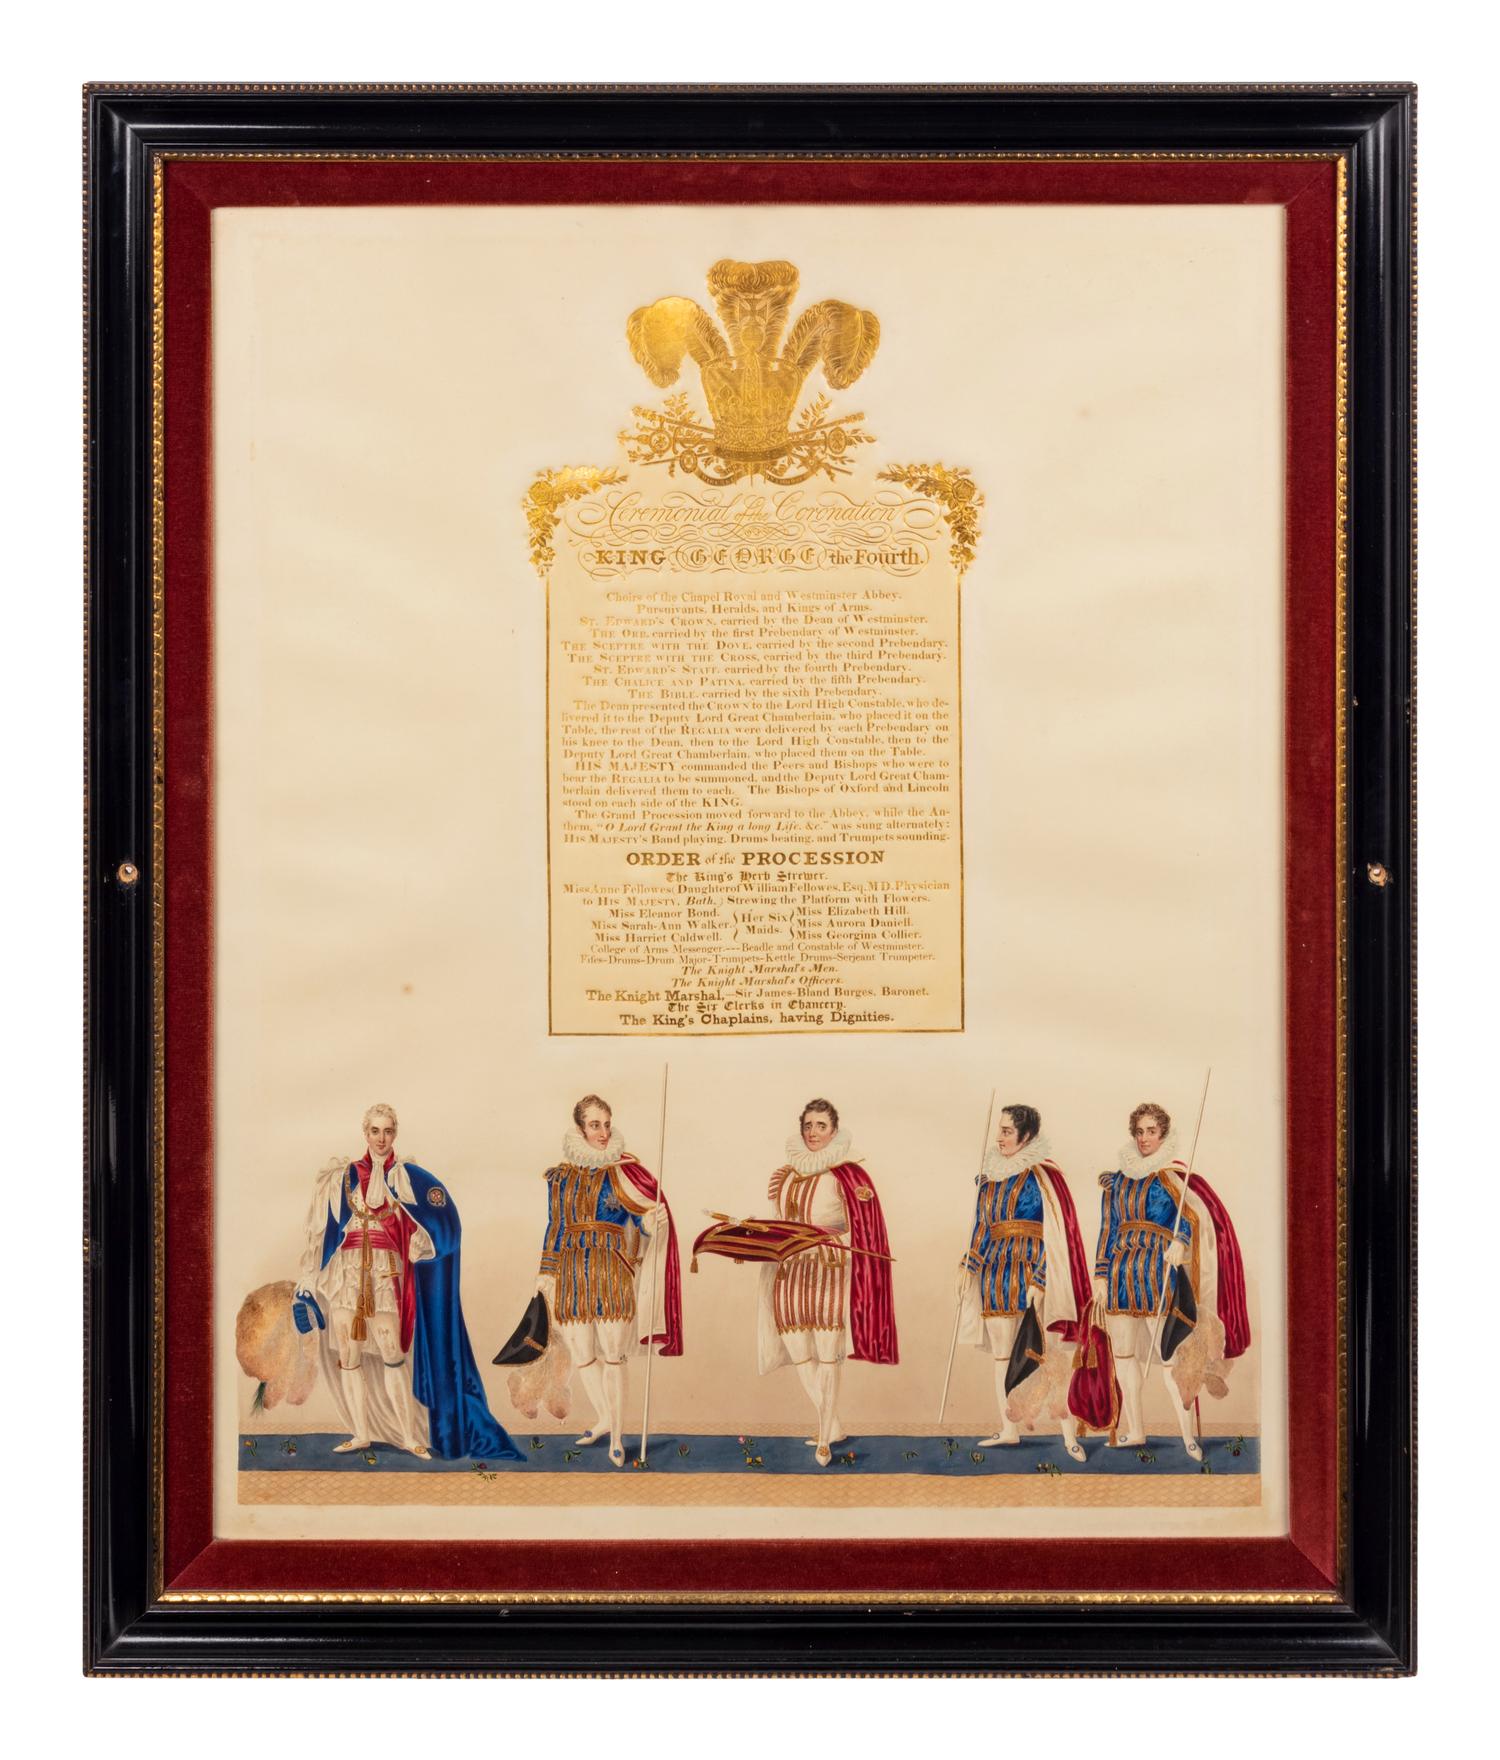 Ceremonial of the Coronation
KING GEORGE the Fourth.
Choirs of the Chapel Royal and Westminster Abbey.
Pursuivants, Heralds, and Kings of Arms.
ST. EDWARD'S CROWN, carried by the Dean of Westminster.
THE ORB, carried by the first Prebendary of Westminster.
THE SCEPTRE WITH THE DOVE, carried by the second Prebendary.
THE SCEPTRE WITH THE CROSS, carried by the third Prebendary.
ST. EDWARD'S STAFF, carried by the fourth Prebendary.
THE CHALICE AND PATINA, carried by the fifth Prebendary.
THE BIBLE, carried by the sixth Prebendary.
The Dean presented the CROWN to the Lord High Constable, who de-
livered it to the Deputy Lord Great Chamberlain, who placed it on the
Table, the rest of the REGALIA were delivered by each Prebendary on
his knee to the Dean, then to the Lord High Constable, then to the
Deputy Lord Great Chamberlain, who placed them on the Table.
HIS MAJESTY commanded the Peers and Bishops who were to
bear the REGALIA to be summoned, and the Deputy Lord Great Cham-
berlain delivered them to each. The Bishops of Oxford and Lincoln
stood on each side of the KING.
The Grand Procession moved forward to the Abbey, while the An-
them, "O Lord Grant the King a long Life, &c." was sung alternately:
HIS MAJESTY'S Band playing, Drums beating, and Trumpets sounding.
ORDER of the PROCESSION
The King's Herb Strewer.
Miss Anne Fellowes (Daughter of William Fellowes, Esq. M D. Physician
to HIS MAJESTY, Bath,) Strewing the Platform with Flowers.
Miss Eleanor Bond. Miss Elizabeth Hill.
Miss Sarah-Ann Walker. Her Six Maids. Miss Aurora Daniell.
Miss Harriet Caldwell. Miss Georgina Collier.
College of Arms Messenger.---Beadle and Constable of Westminster.
Fifes-Drums-Drum Major-Trumpets-Kettle Drums-Serjeant Trumpeter.
The Knight Marshal's Men.
The Knight Marshal's Officers.
The Knight Marshal,—Sir James-Bland Burges, Baronet.
The Six Clerks in Chancery.
The King's Chaplains, having Dignities.